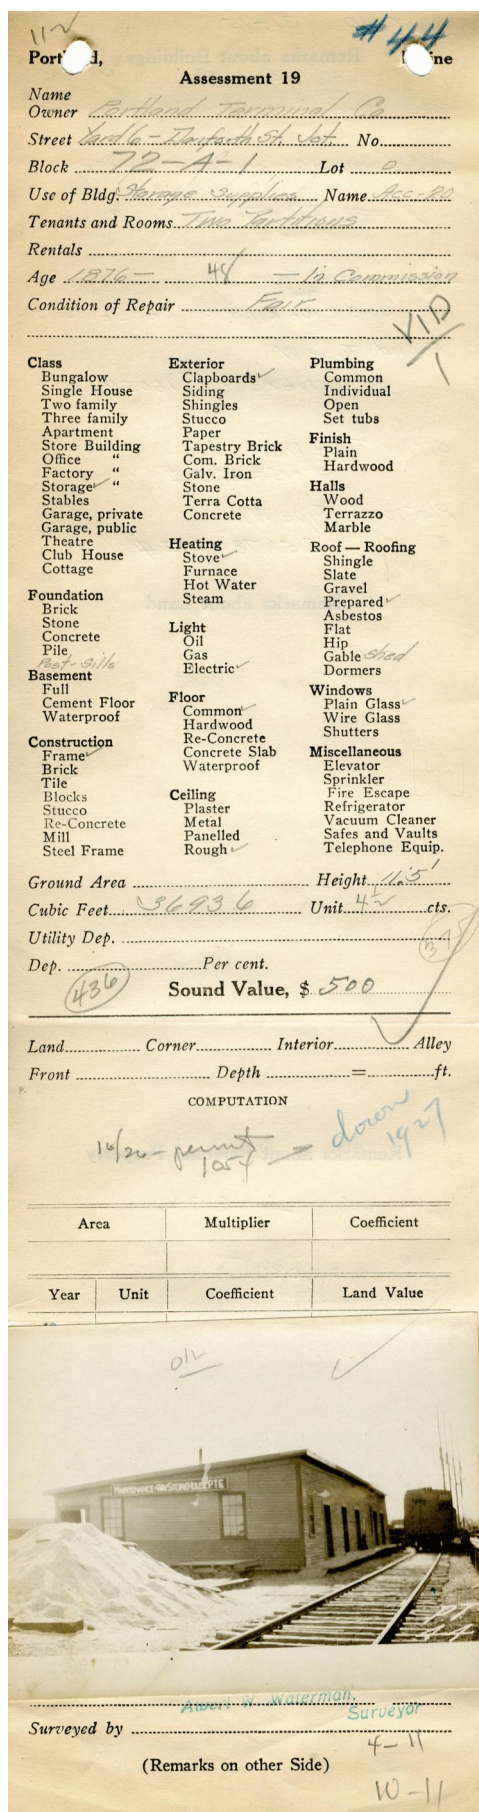 112
#44
Portland, Maine
Assessment 19
Name
Owner Portland Terminal Co
Street Yard 6 - Danforth St. Jct. No.
Block 72-A-1 Lot 0
Use of Bldg. Storage Supplies Name Acc-80
Tenants and Rooms Two Partitions
Rentals
Age 1876- 48 - In Commission
Condition of Repair Fair
VID
1
Class
Bungalow
Single House
Two family
Three family
Apartment
Store Building
Office "
Factory "
Storage ✓ "
Stables
Garage, private
Garage, public
Theatre
Club House
Cottage
Foundation
Brick
Stone
Concrete
Pile
Post-Sills
Basement
Full
Cement Floor
Waterproof
Construction
Frame ✓
Brick
Tile
Blocks
Stucco
Re-Concrete
Mill
Steel Frame
Exterior
Clapboards ✓
Siding
Shingles
Stucco
Paper
Tapestry Brick
Com. Brick
Galv. Iron
Stone
Terra Cotta
Concrete
Heating
Stove ✓
Furnace
Hot Water
Steam
Light
Oil
Gas
Electric ✓
Floor
Common ✓
Hardwood
Re-Concrete
Concrete Slab
Waterproof
Ceiling
Plaster
Metal
Panelled
Rough ✓
Plumbing
Common
Individual
Open
Set tubs
Finish
Plain
Hardwood
Halls
Wood
Terrazzo
Marble
Roof — Roofing
Shingle
Slate
Gravel
Prepared ✓
Asbestos
Flat
Hip
Gable Shed
Dormers
Windows
Plain Glass ✓
Wire Glass
Shutters
Miscellaneous
Elevator
Sprinkler
Fire Escape
Refrigerator
Vacuum Cleaner
Safes and Vaults
Telephone Equip.
Ground Area Height 11.5'
Cubic Feet 36936 Unit 4½ cts.
Utility Dep.
Dep. Per cent.
436
Sound Value, $ 500
Land Corner Interior Alley
Front Depth = ft.
COMPUTATION
10/26 - permit
1054 - down
1927
Area Multiplier Coefficient
Year Unit Coefficient Land Value
MAINTENANCE WAY STOREHOUSE PT6
44
Albert W. Waterman,
Surveyor
Surveyed by
4-11
(Remarks on other Side)
10-11